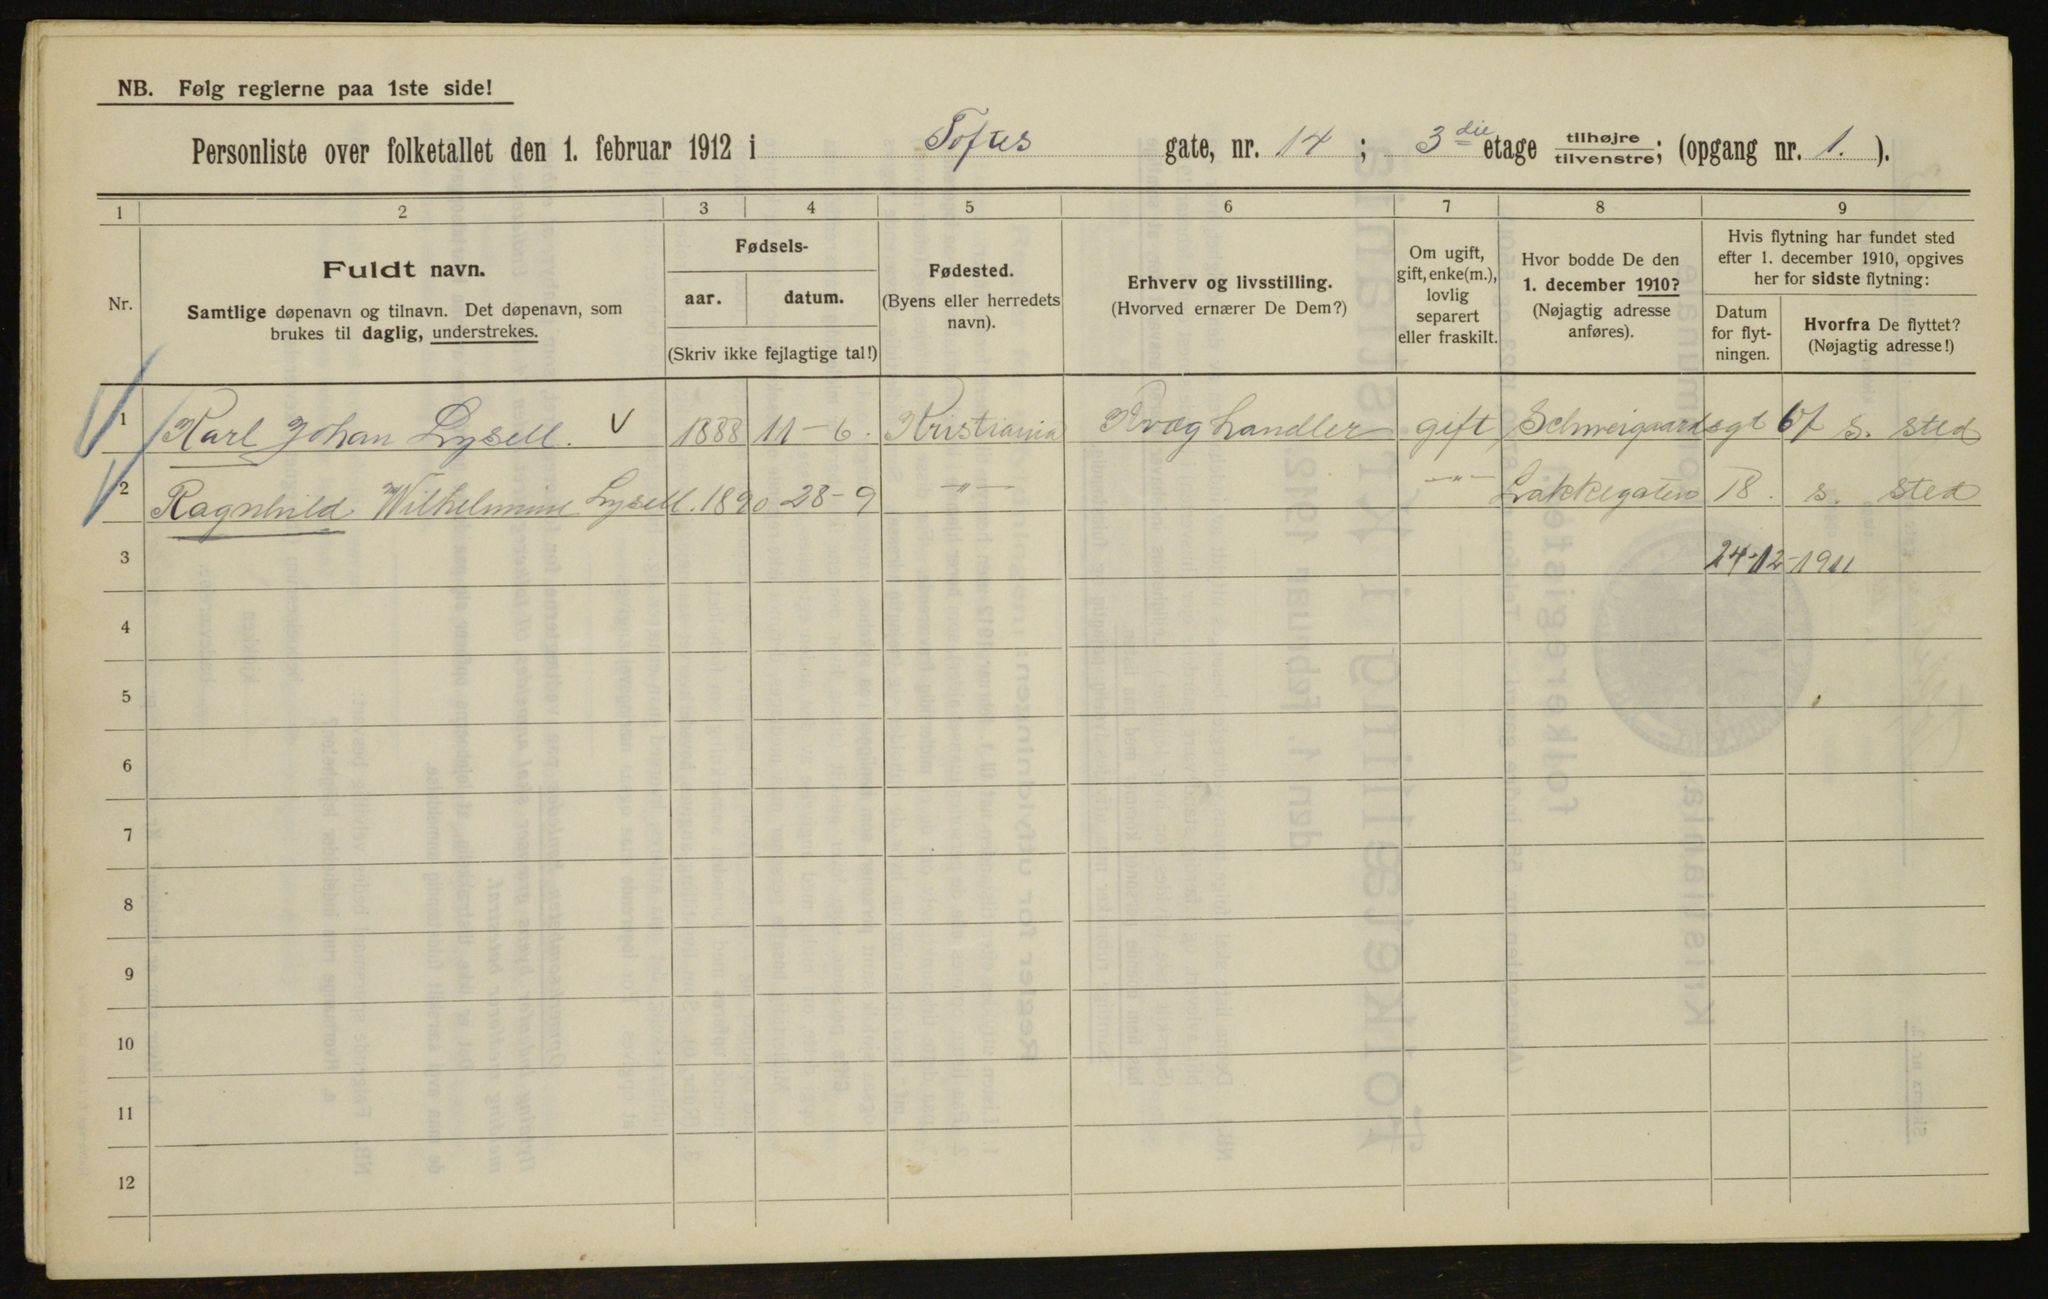 NB. Følg reglerne paa 1ste side!
Personliste over folketallet den 1. februar 1912 i Toftes gate, nr. 14 ; 3die etage tilhøjre/tilvenstre; (opgang nr. 1. ).
1 2 3 4 5 6 7 8 9
Nr.
Fuldt navn.
Samtlige døpenavn og tilnavn. Det døpenavn, som
brukes til daglig, understrekes.
Fødsels-
aar. datum.
(Skriv ikke fejlagtige tal!)
Fødested.
(Byens eller herredets
navn).
Erhverv og livsstilling.
(Hvorved ernærer De Dem?)
Om ugift,
gift, enke(m.),
lovlig
separert
eller fraskilt.
Hvor bodde De den
1. december 1910?
(Nøjagtig adresse
anføres).
Hvis flytning har fundet sted
efter 1. december 1910, opgives
her for sidste flytning:
Datum
for flyt-
ningen.
Hvorfra De flyttet?
(Nøjagtig adresse!)
1 Karl Johan Lysell. V 1888 11-6. Kristiania Kvæghandler gift Schweigaardsgt s. sted
2 Ragnhild Wilhelmine Lysell. 1890 28-9 -"- -"- Lakkegaten 18. s. sted
3 24-12-1911
4
5
6
7
8
9
10
11
12